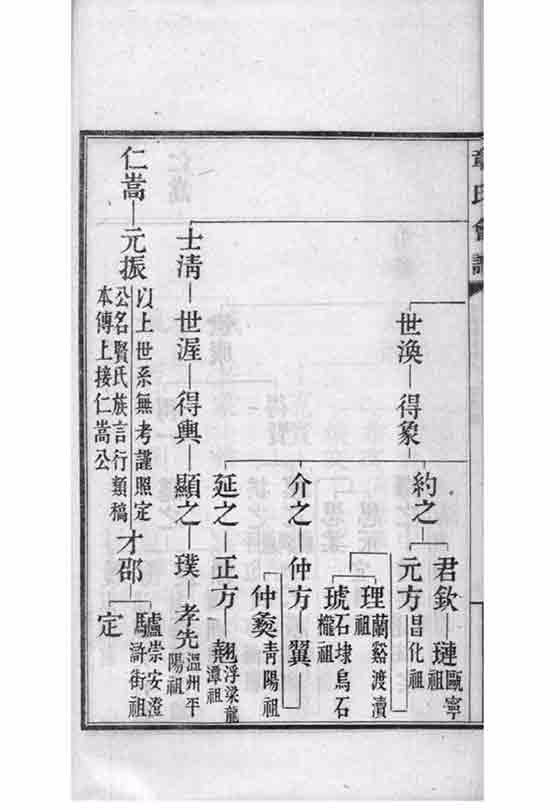 章氏會譜
世渙 得象
約之
君欽 璉 甌寧祖
元方 昌化祖
理 蘭谿渡瀆祖
琥 石埭烏石櫳祖
介之 仲方 翼
仲奏 青陽祖
延之 正方 翹 浮梁龍潭祖
士清 世渥 得輿 顯之 璞 孝先 溫州平陽祖
仁嵩 元振
以上世系無考謹照定
公名賢氏族言行類稿
本傳上接仁嵩公
才邵
驢 崇安澄滸街祖
定